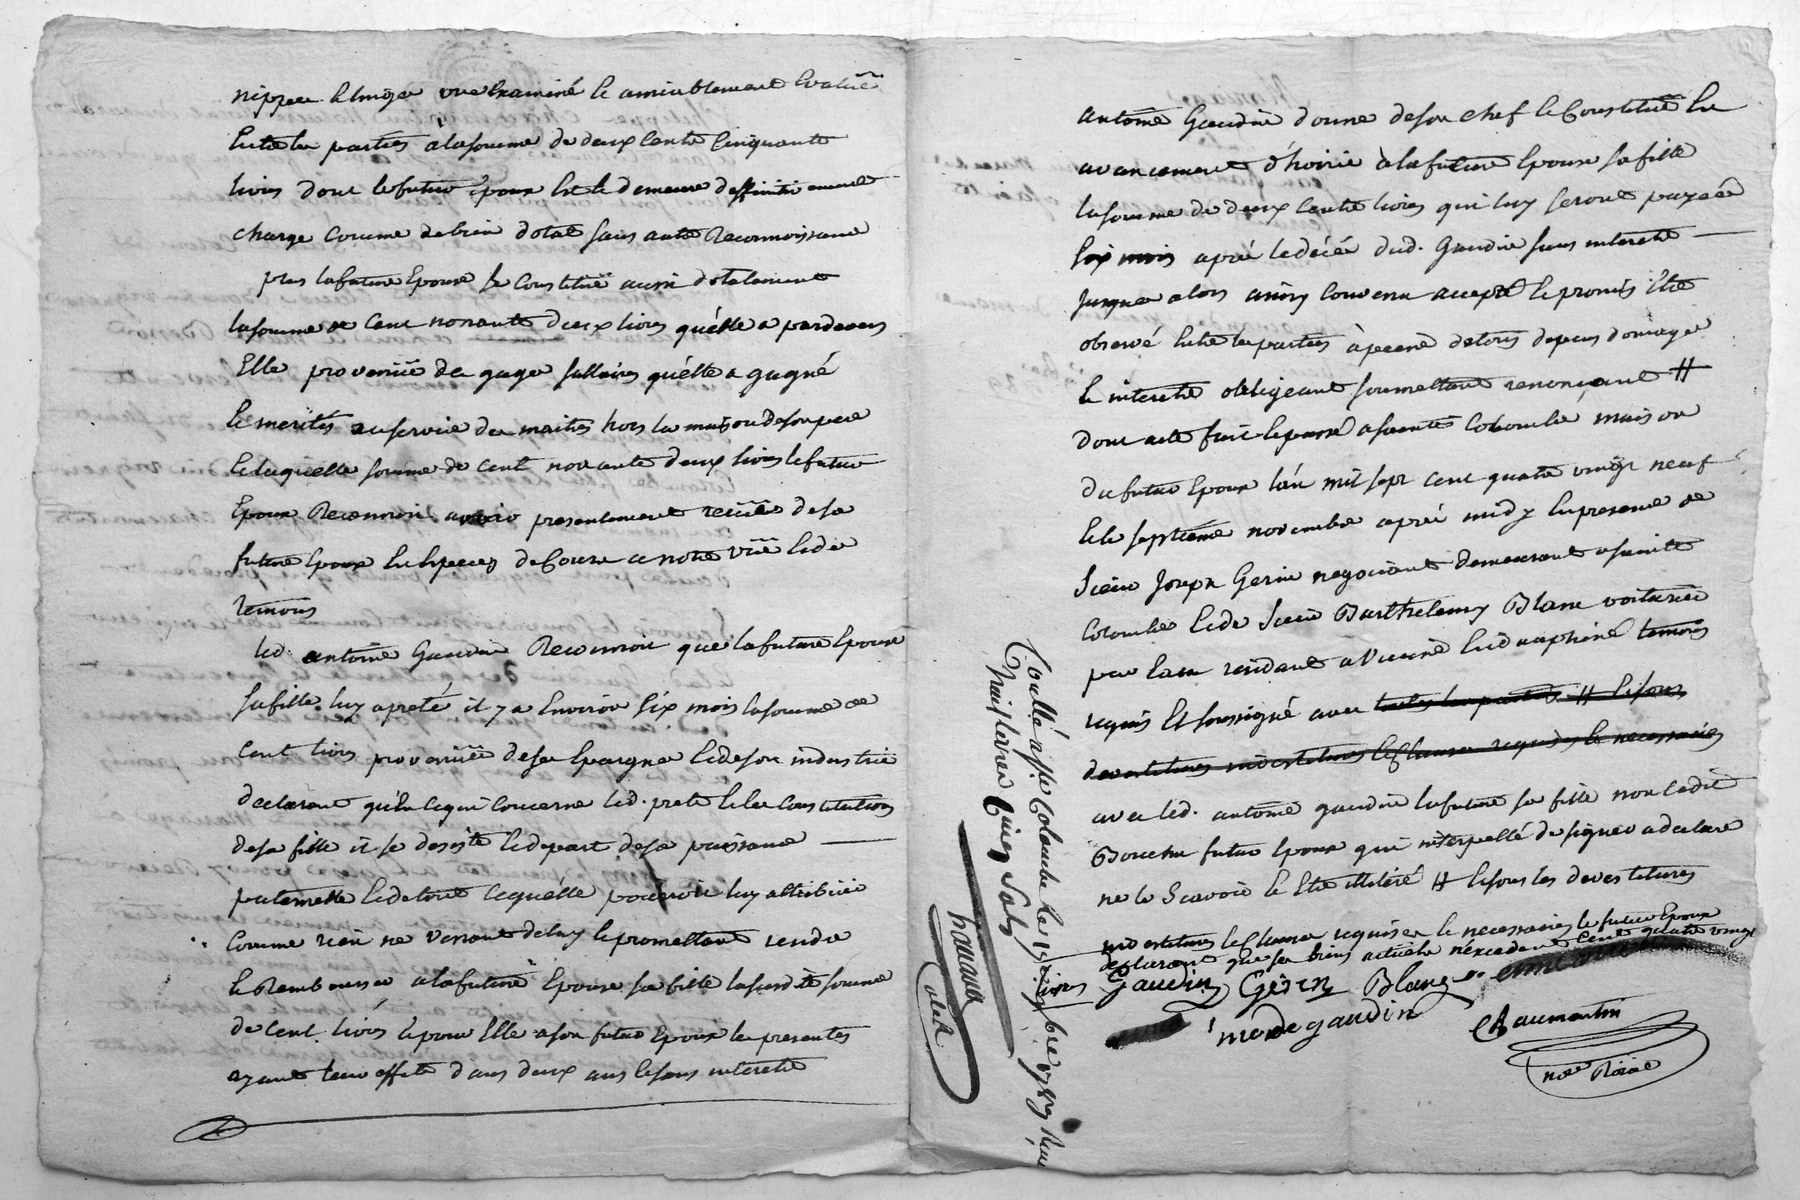 nippes linge vue Examiné le ameublement Evalué
Entre les parties à la somme de deux cents cinquante
livres dont le futur Epoux Est et demeure deffinitivement
chargé comme de bien dotal sans autre Reconnoissance
plus la future Epouse se constitue aussi dotalement
la somme de cent nonante deux livres qu'elle a pardevers
Elle provenüe de gages sallaires qu'elle a gagné
et merités au service des maitres hors la maison de son pere
de laquelle somme de cent nonante deux livres le futur
Epoux Reconnoit avoir presentement reçüe de sa
future Epouse En Especes de cours a notre vüe Et des
temoins
led. antoine Gaudin Reconnoit que la future Epouse
sa fille luy a preté il y a Environ six mois la somme de
cent livres provenüe de sa Epargne Et de son industrie
declarant qu'En ce qui concerne led. prete Et les constitutions
de sa fille il se desiste Et depart de sa puissance
paternelle Et de tout ce qu'elle pourroit luy attribuer
comme rien ne venant de luy Et promettant rendre
Et Rembourser a la future Epouse sa fille la susdite somme
de cent livres Et pour Elle a son futur Epoux les presentes
ayant leur effets dans deux ans Et sans interets
antoine Gaudin donne de son chef Et constitue En
avancement d'hoirie à la future Epouse sa fille
la somme de deux cents livres qui luy seront payées
six mois après le décés dud. Gaudin sans interets
jusques alors ainsy convenu accepté Et promis Etre
observé Entre les parties à peine de tous depens domages
Et interets obligeant soumettant renonçant #
dont acte fait Et passé a sainte colombe maison
du futur Epoux l'an mil sept cent quatre vingt neuf
Et le septieme novembre après midy En presence de
Sieur Joseph Gerin negociant demeurant a sainte
colombe Et de Sieur Barthelemy Blanc voiturier
par Eau residant a Vienne En dauphiné temoins
requis Et soussigné avec toutes les parties # Et sous
devestitures investitures Et clauses requises Et necessaires
avec led. antoine gaudin la future sa fille non ledit
futur Epoux qui interpellé de signer a declaré
ne le Scavoir Et Etre illeteré # Et sous les devestitures
investitures Et clauses requises Et necessaires le futur Epoux
declarant que ses biens actuels n'excedent cent quatre vingt
livres Gaudin Gerin Blanc
marie gaudin Chaumartin
nore Roial
Controllé a Ste Colombe le 15 9bre 1789 Reçu
trois livres cinq sols